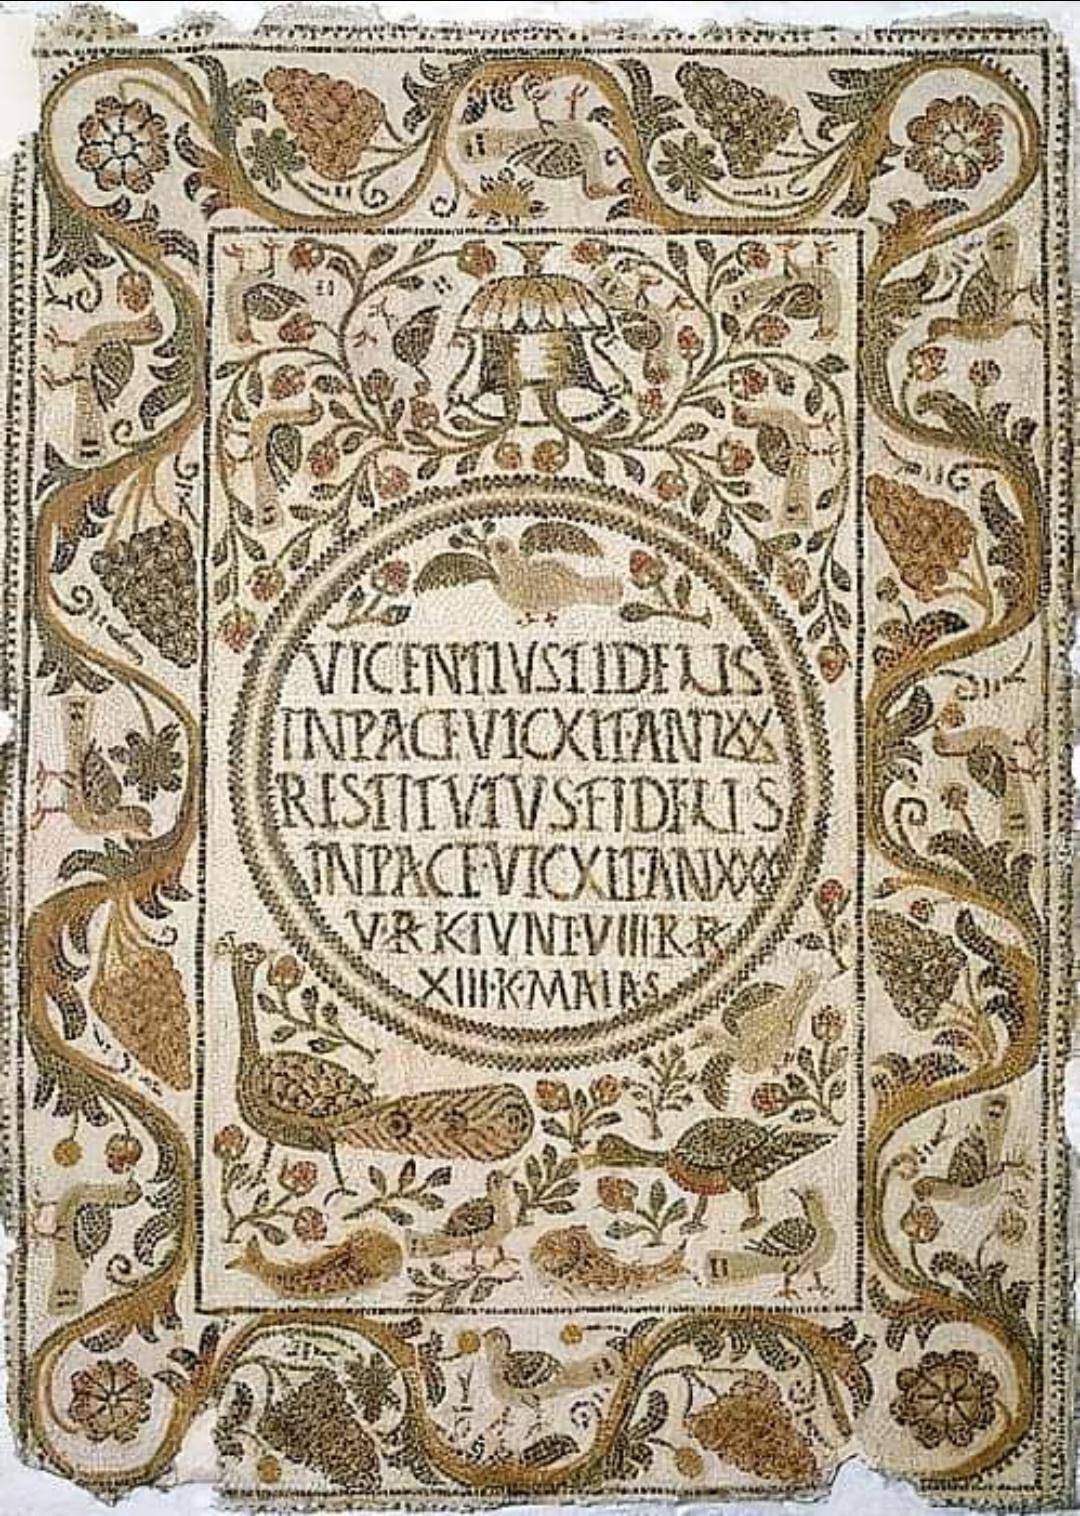 VICENTIVS FIDELIS
INPACE·VICXIT·ANXX
RESTITVTVS·FIDELIS
INPACE·VICXIT·ANXXX
V·R·K·IVNI·VIIII·R·R
XIIII·K·MAIAS